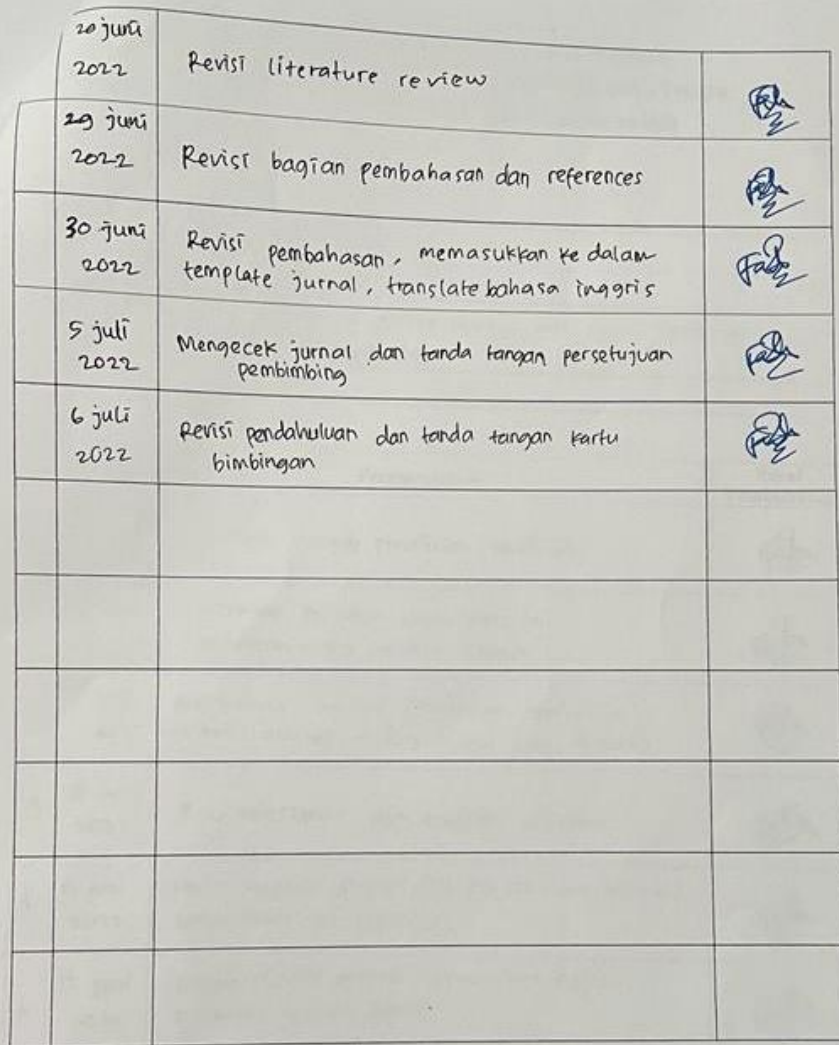 20 juni
2022
Revisi literature review
29 juni
2022
Revisi bagian pembahasan dan references
30 juni
2022
Revisi pembahasan, memasukkan ke dalam
template jurnal, translate bahasa inggris
5 juli
2022
Mengecek jurnal dan tanda tangan persetujuan
pembimbing
6 juli
2022
Revisi pendahuluan dan tanda tangan kartu
bimbingan